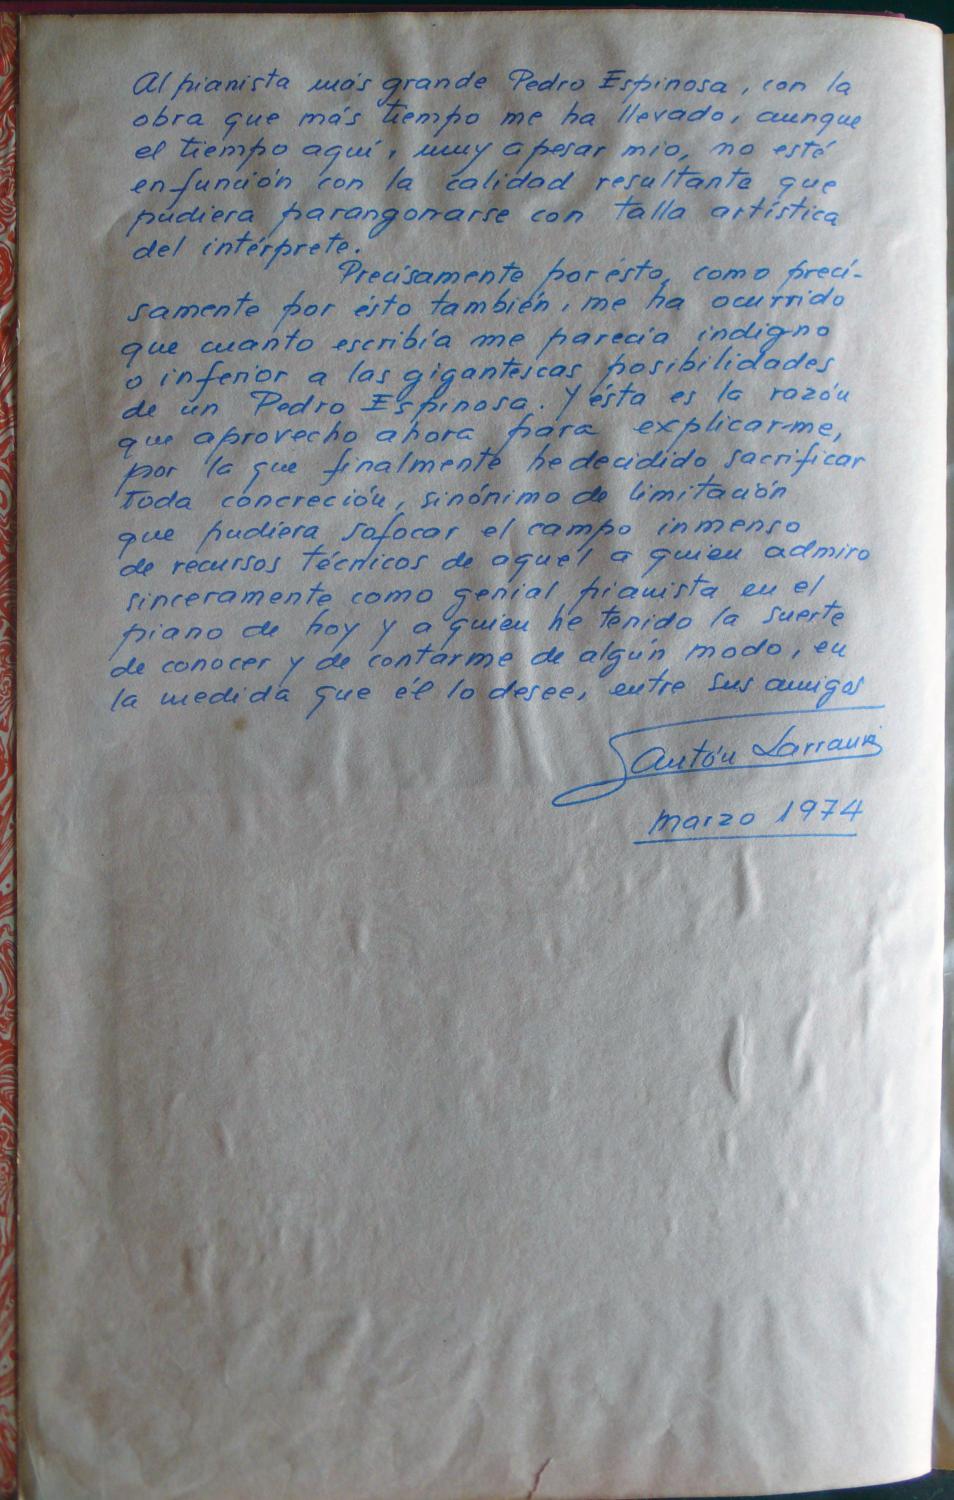 Al pianista más grande Pedro Espinosa, con la
obra que más tiempo me ha llevado, aunque
el tiempo aquí, muy a pesar mio, no esté
en función con la calidad resultante que
pudiera parangonarse con talla artística
del intérprete.
Precisamente por ésto, como preci-
samente por ésto también, me ha ocurrido
que cuanto escribía me parecía indigno
o inferior a las gigantescas posibilidades
de un Pedro Espinosa. Y ésta es la razón
que aprovecho ahora para explicar-me,
por la que finalmente he decidido sacrificar
toda concreción, sinónimo de limitación
que pudiera sofocar el campo inmenso
de recursos técnicos de aquel a quien admiro
sinceramente como genial pianista en el
piano de hoy y a quien he tenido la suerte
de conocer y de contarme de algún modo, en
la medida que él lo desee, entre sus amigos
Antón Larrauri
Marzo 1974